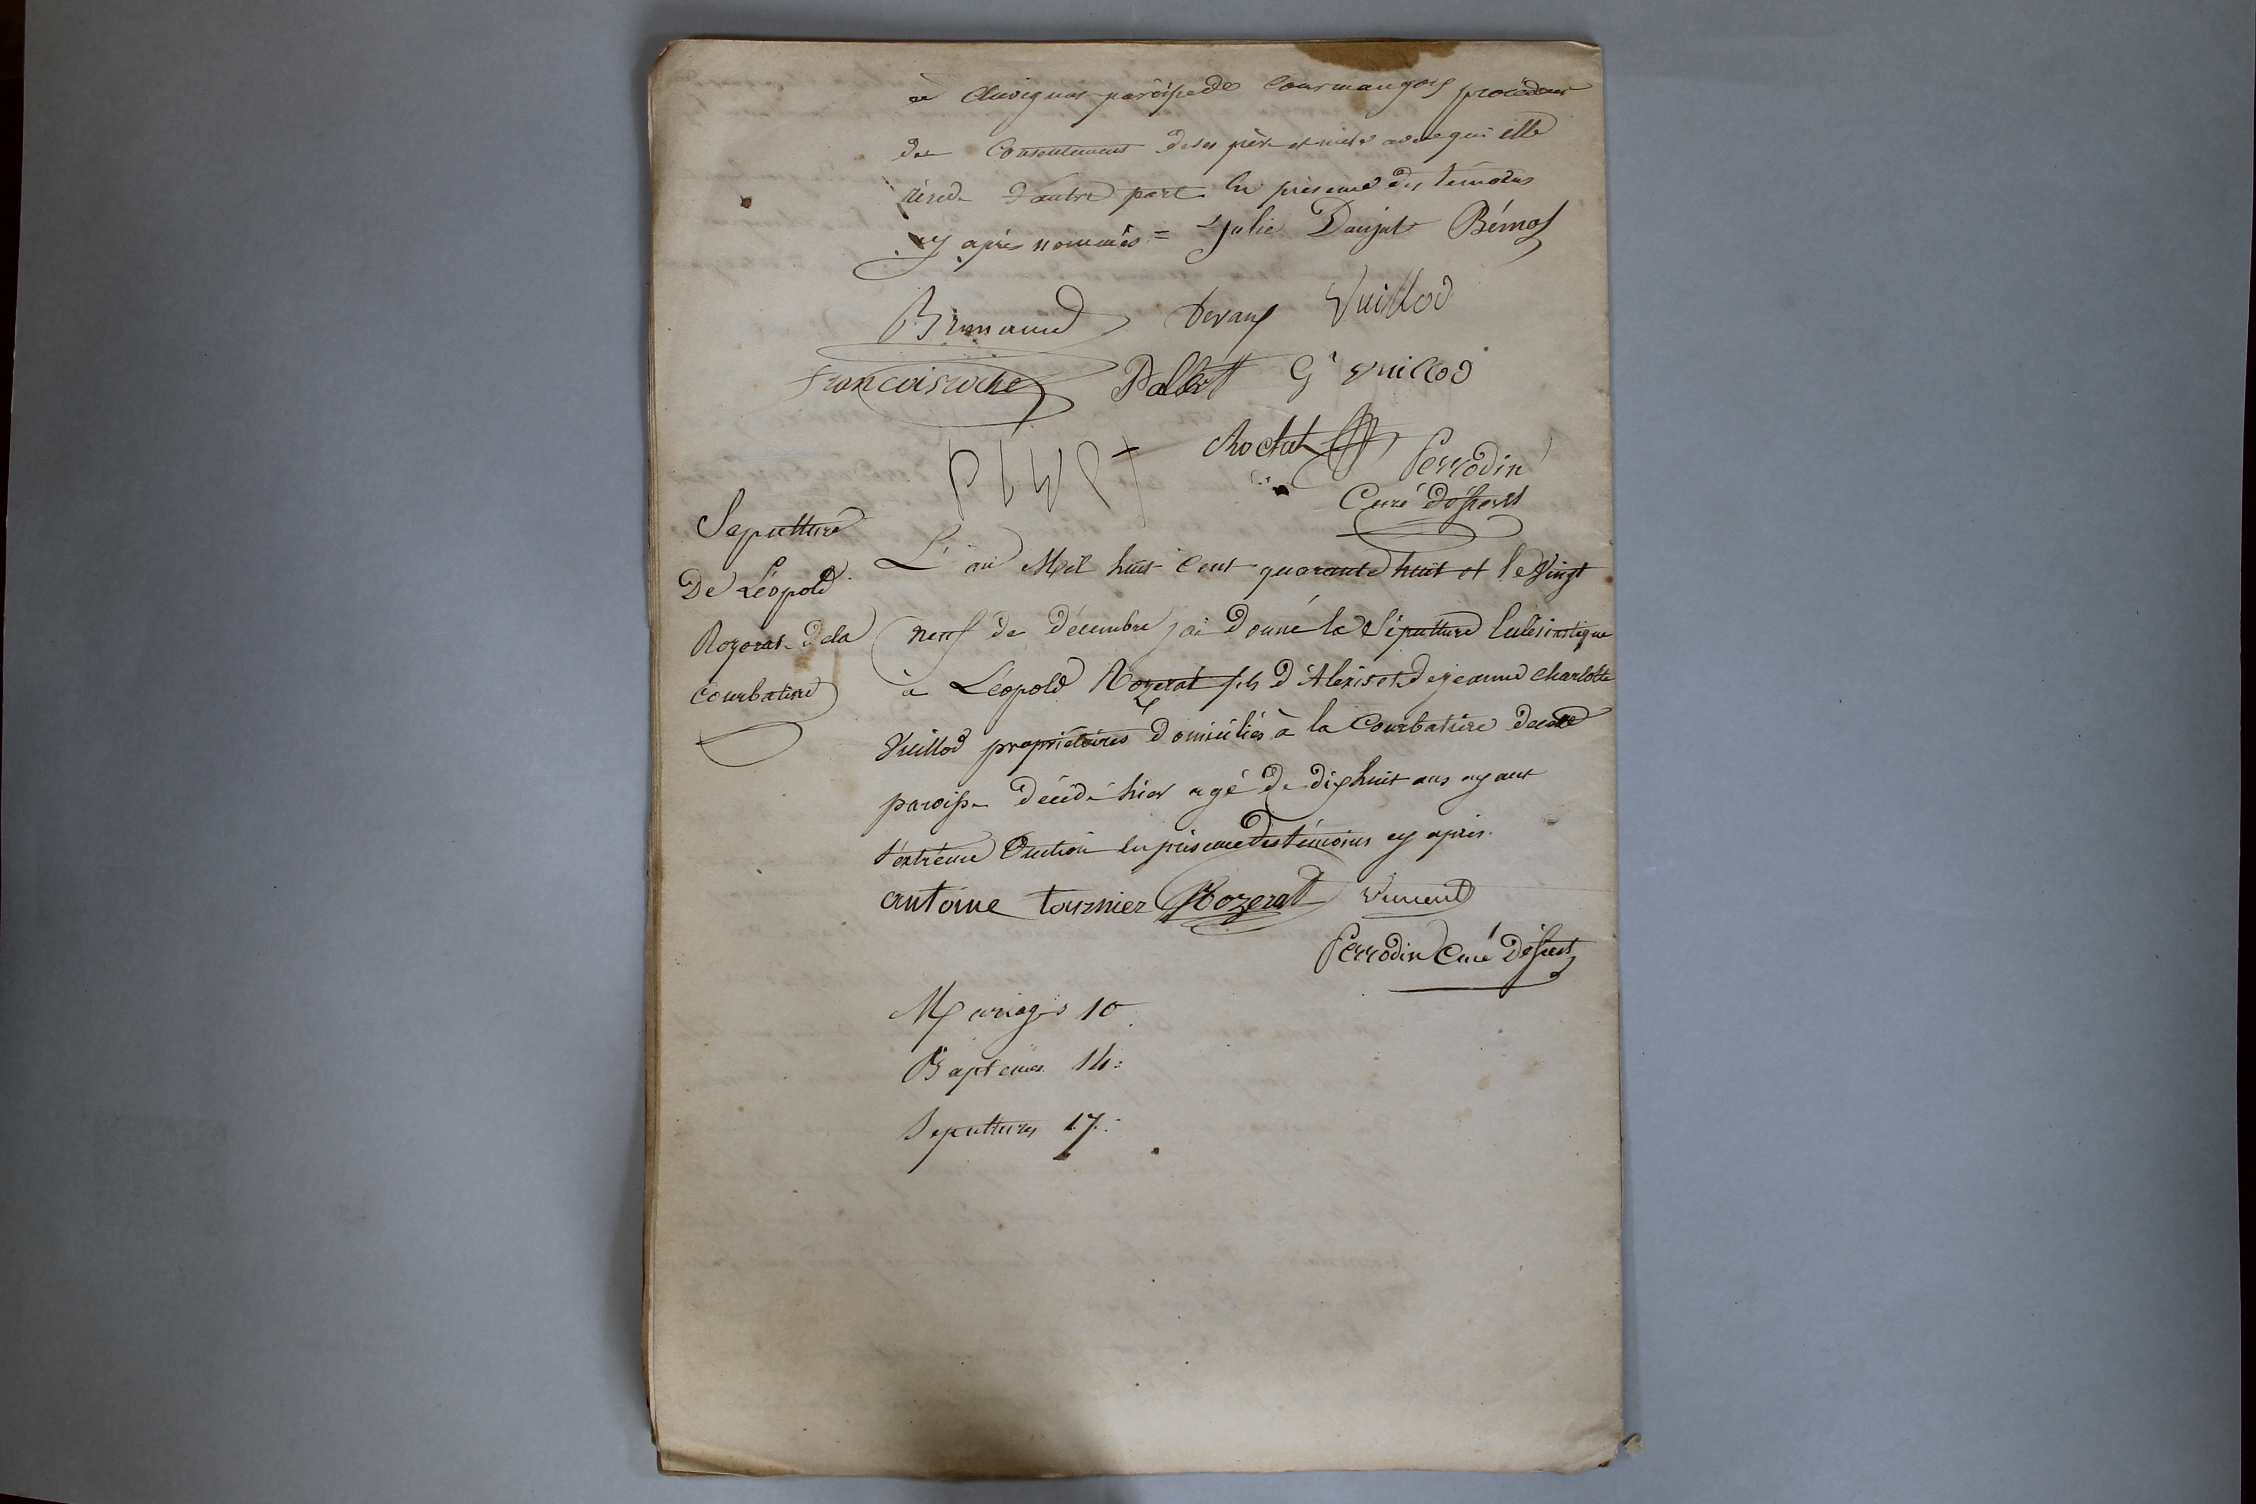 à Chevignat paroisse de Courmangoux procédant
du Consentement de ses père et mère avec qui elle
réside d'autre part En présence des témoins
cy après nommés = Julie Danjat Bémol
Vuillod
Francois roche Palliot G Vuillod
chochat Perrodin
Curé
Sepulture
De Léopold
Rozerat de la
Courbatière
L'an Mil huit Cent quarante huit et le Vingt
neuf de décembre j'ai Donné la Sépulture Eclésiastique
à Léopold Rozerat fils d'Alexis et de jeanne charlotte
Vuillod propriétaires domiciliés à la Courbatière de cette
paroisse Décédé hier agé de dixhuit ans ayant
l'extrème Onction En présence des témoins cy après
antoine tournier Rozerat Vincent
Perrodin Curé
Mariages 10
Baptemes 14:
Sepultures 17: